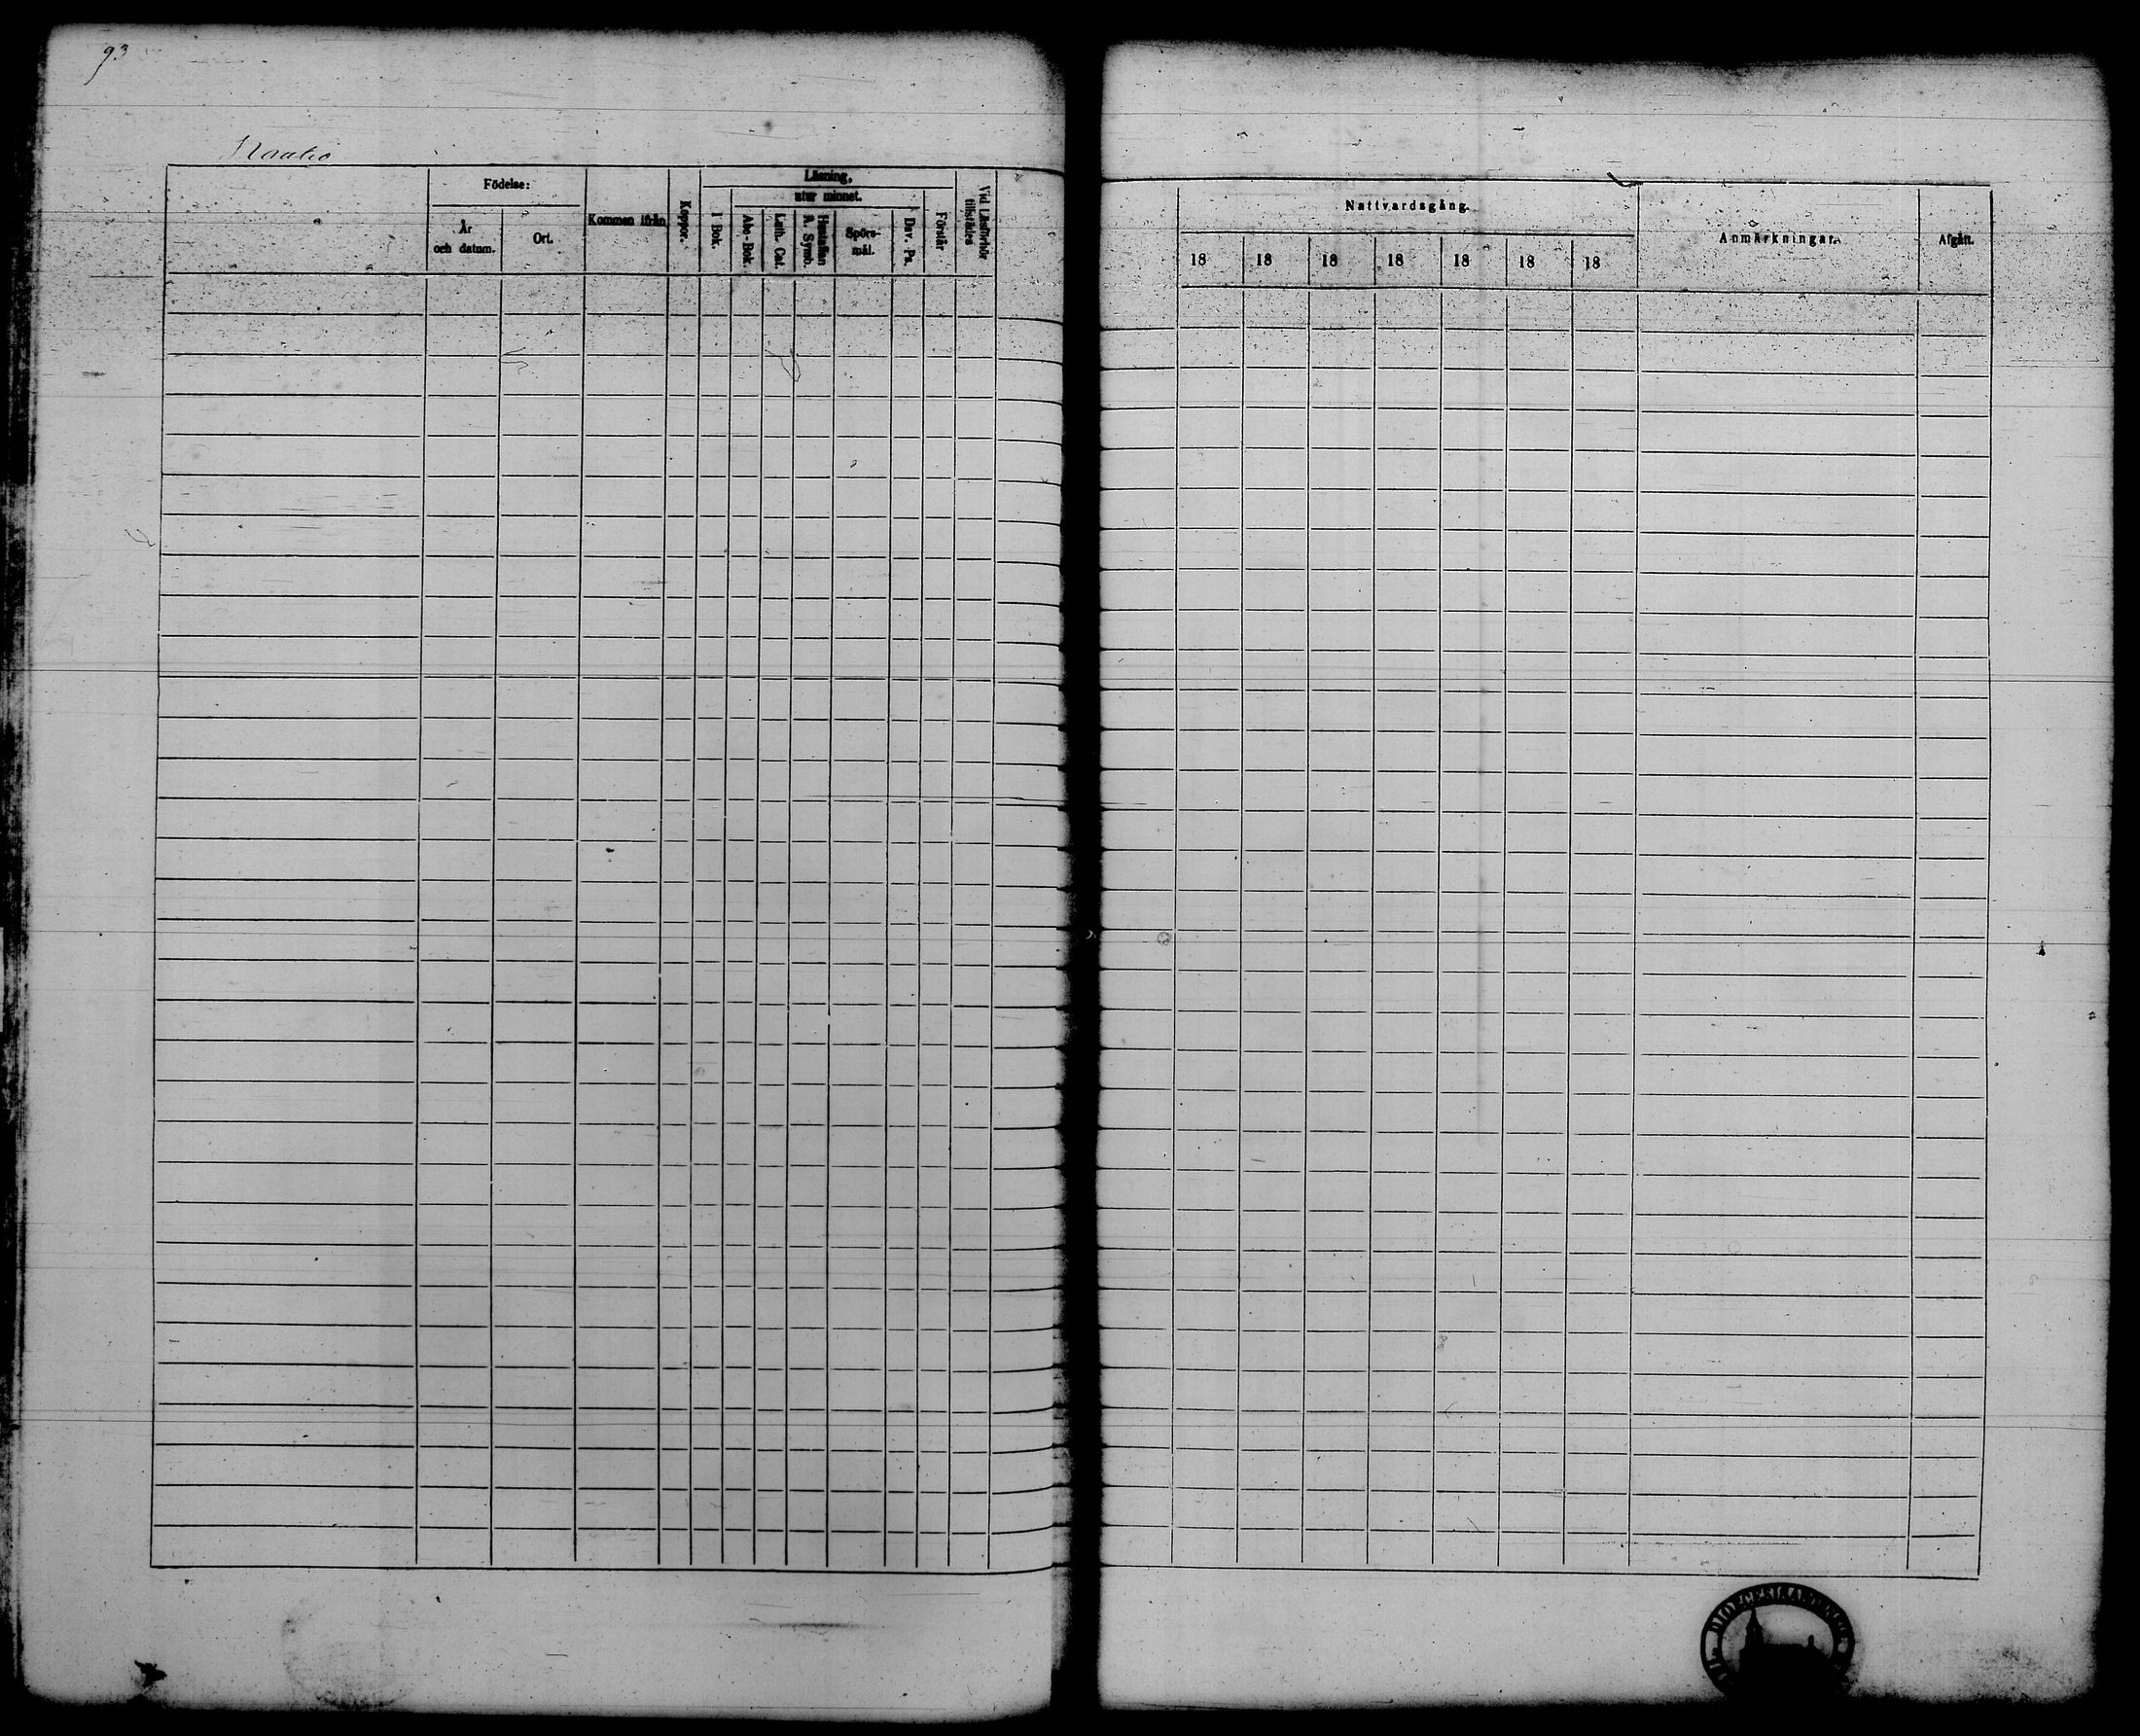 93
Födelse:
År
och datum.
Ort.
Kommen ifrån
Koppor.
Läsning,
utur minnet.
I Bok.
Abc-Bok.
Luth. Cat.
Hustaflan
A. Symb.
Spörs-
mål.
Dav. Ps.
Förstår
Vid Läsförhör
tillstädes
Nattvardsgång.
18 18 18 18 18 18 18
Anmärkningar.
Afgått.